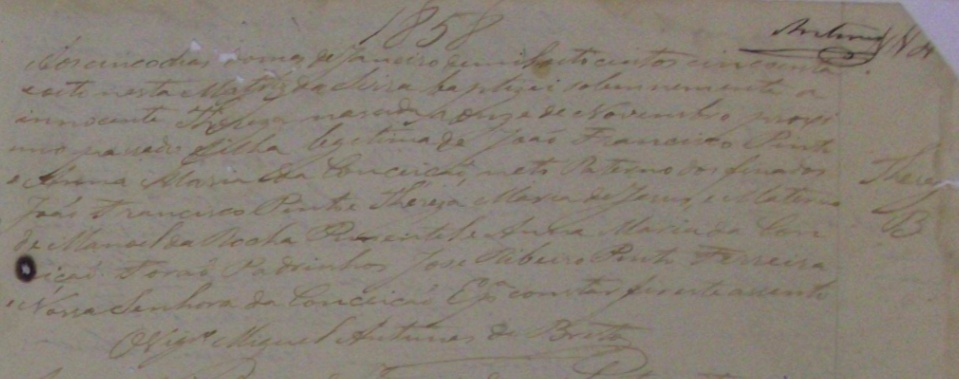 1858
Aos cinco dias do mez de Janeiro de mil oito centos cincoenta
e oito nesta Matriz da baptizei solemnemente a
innocente Thereza nascida a onze de Novembro proxi
mo passado filha legitima de João Francisco Pinto
e Anna Maria da Conceicaõ, neto Paterno dos finados
João Francisco Pinto e Thereza Maria de Jesus, e Materna
de Manoel da Rocha Pimentel e Anna Maria da Con
ceicaõ Foraõ Padrinhos José Ribeiro Pinto Ferreira
e Nossa Senhora da Conceicaõ E pª constar fiz este assento
O Vigrº Miguel Antunes de Brito
Therez
B